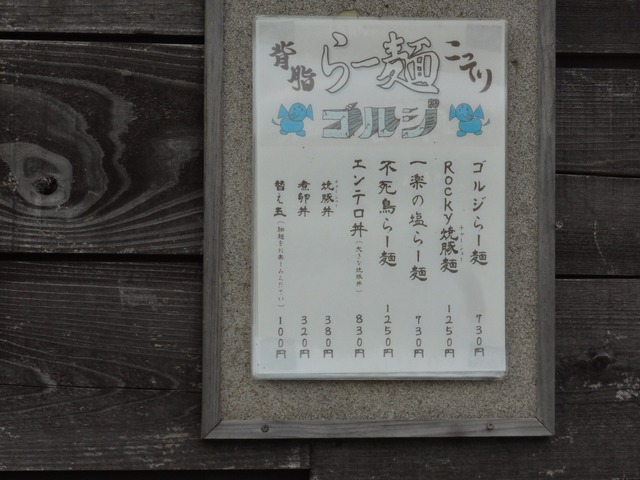 背脂
らー麺
こってり
ゴルジ
ゴルジらー麺 730円
Rocky焼豚麺 1250円
一楽の塩らー麺 730円
不死鳥らー麺 1250円
エンテロ丼(大きな焼豚丼) 830円
焼豚丼 380円
煮卵丼 320円
替え玉(細麺をお楽しみください) 100円